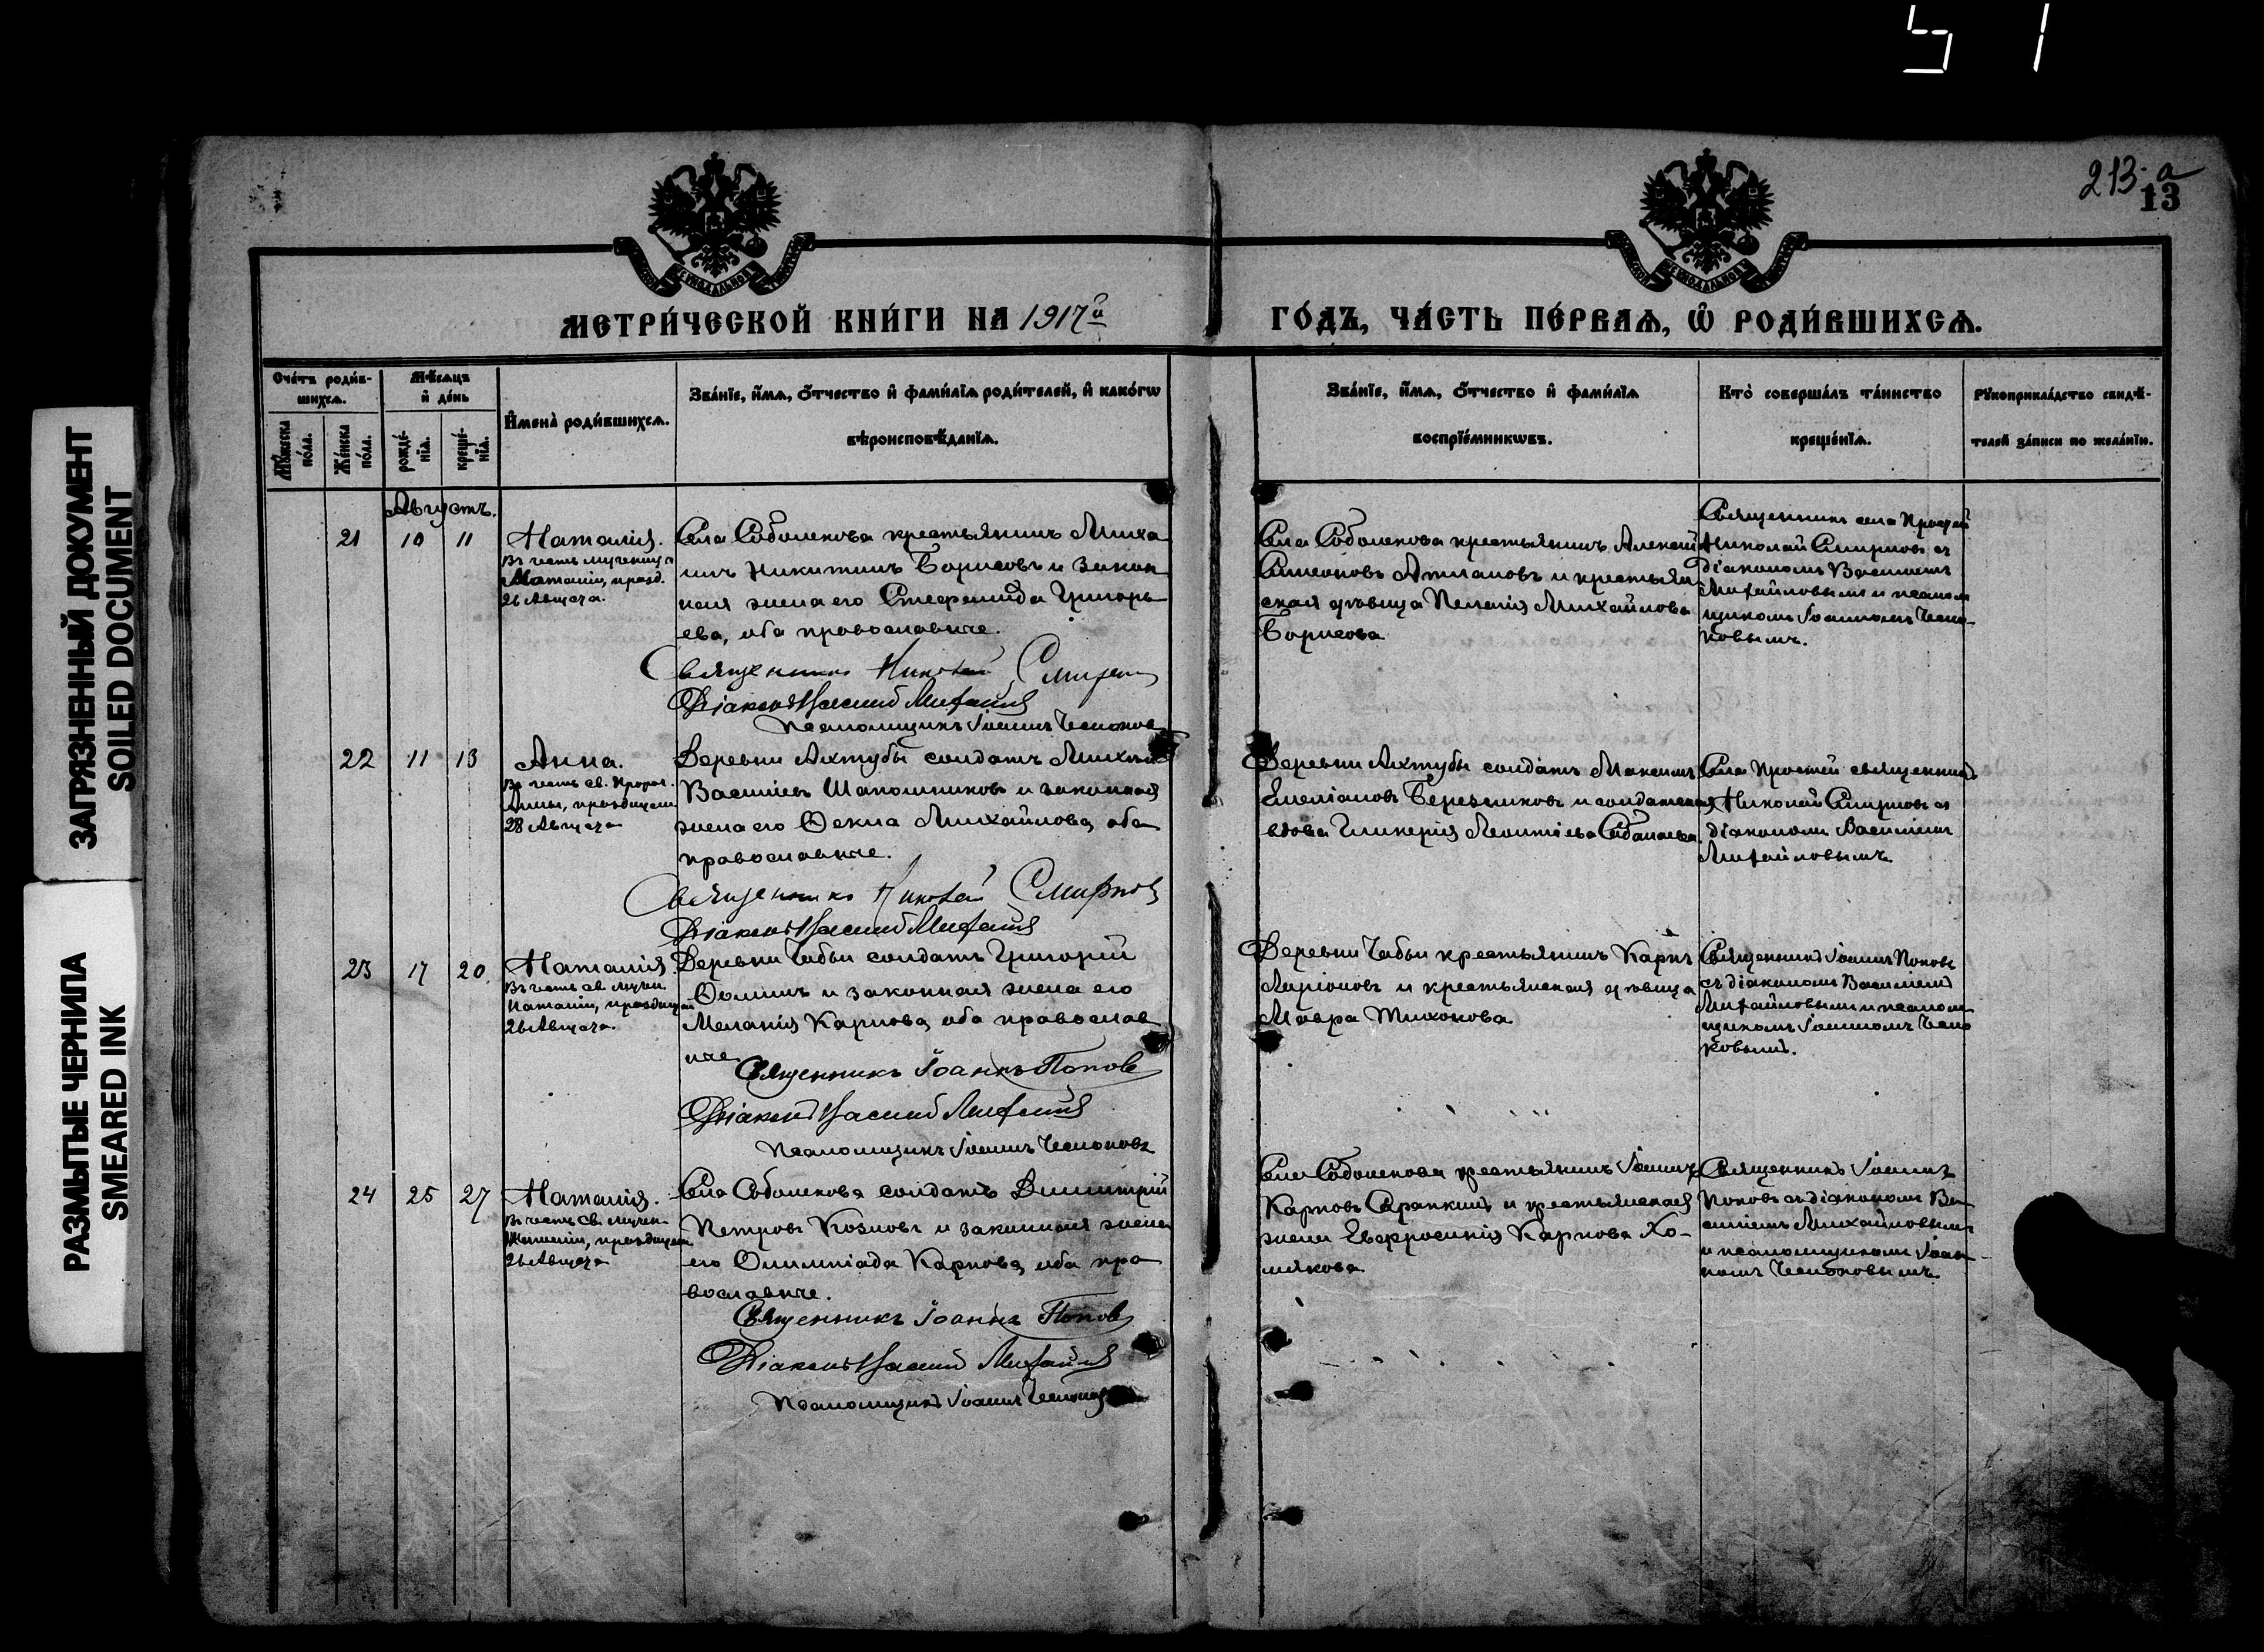 213 а
13
МЕТРИ́ЧЕСКОЙ КНИ́ГИ НА 1917й
ГО́ДЪ, ЧА́СТЬ ПЕ́РВАѦ, Ѽ РОДИ́ВШИХСѦ.
Сче́тъ роди́в-
шихсѧ.
Мѣ́сѧцъ
и҆ де́нь
Мꙋ́жеска
по́ла.
Же́нска
по́ла.
рожде́-
нїѧ.
креще́-
нїѧ.
И҆мена̀ роди́вшихсѧ.
Зва́нїе, и҆́мѧ, ѻ҆́тчество и҆ фами́лїѧ роди́телей, и҆ како́гѡ
вѣроисповѣ́данїѧ.
Зва́нїе, и҆́мѧ, ѻ҆́тчество и҆ фами́лїѧ
воспрїе́мникѡвъ.
Кто̀ соверша́лъ та́инство
креще́нїѧ.
Рꙋкоприкла́дство свидѣ́-
телей за́писи по жела́нїю.
Августъ.
21
10
11
Наталія.
Въ честь мученицы
Наталіи, празд.
26 Августа.
Села Соболекова крестьянинъ Миха
илъ Никитинъ Борисовъ и закон
ная жена его Стефанида Григорь
ева, оба православные.
Священникъ Николай Смирнов
Діаконъ Василій Михайлов
Псаломщикъ Іоаннъ
Села Соболекова крестьянинъ Алексій
Симеоновъ и крестьян
ская дѣвица Пелагія Михайлова
Борисова
Священникъ села Простей
Николай Смирновъ съ
діакономъ Василіемъ
Михайловымъ и псалом
щикомъ Іоанномъ
22
11
13
Анна.
Въ честь св. Прор.
Анны, празднуем.
28 Августа
Деревни Ахтубы солдатъ Михаилъ
Василіевъ Шапошниковъ и законная
жена его Ѳекла Михайлова, оба
православные.
Священникъ Николай Смирнов
Діаконъ Василій Михайлов
Деревни Ахтубы солдатъ Максимъ
Емеліановъ Березниковъ и солдатская
вдова Гликерія Леонтіева
Села Простей священникъ
Николай Смирновъ съ
діакономъ Василіемъ
Михайловымъ
23
17
20
Наталія.
Въ честь св. мучен.
Наталіи, празднуем
26 Августа.
Деревни Чабьи солдатъ Григорій
Ѳоминъ и законная жена его
Меланія Карпова, оба православ
ные
Священникъ Іоаннъ Попов
Діаконъ Василій Михайлов
Псаломщикъ Іоаннъ
Деревни Чабьи крестьянинъ Карпъ
Ларіоновъ и крестьянская дѣвица
Мавра Тихонова
Священникъ Іоаннъ Поповъ
съ діакономъ Василіемъ
Михайловымъ и псалом
щикомъ Іоанномъ
24
25
27
Наталія.
Въ честь Св. мучен.
Наталіи, празднуем.
26 Августа
Села Соболекова солдатъ Димитрій
Петровъ Козловъ и законная жена
его Олимпіада Карпова, оба пра
вославные.
Священникъ Іоаннъ Попов
Діаконъ Василій Михайлов
Псаломщикъ Іоаннъ
Села Соболекова крестьянинъ Іоаннъ
Карповъ и крестьянская
жена Евфросинія Карпова Хо-
мякова
Священникъ Іоаннъ
Поповъ съ діакономъ Ва
силіемъ Михайловымъ
и псаломщикомъ Іоан-
номъ
ЗАГРЯЗНЕННЫЙ ДОКУМЕНТ
SOILED DOCUMENT
РАЗМЫТЫЕ ЧЕРНИЛА
SMEARED INK